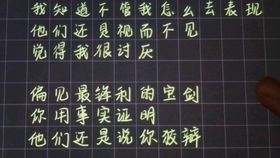 我知道不管我怎么去表现
他们还是视而不见
觉得我很讨厌
偏见最锋利的宝剑
你用事实证明
他们还是说你狡辩